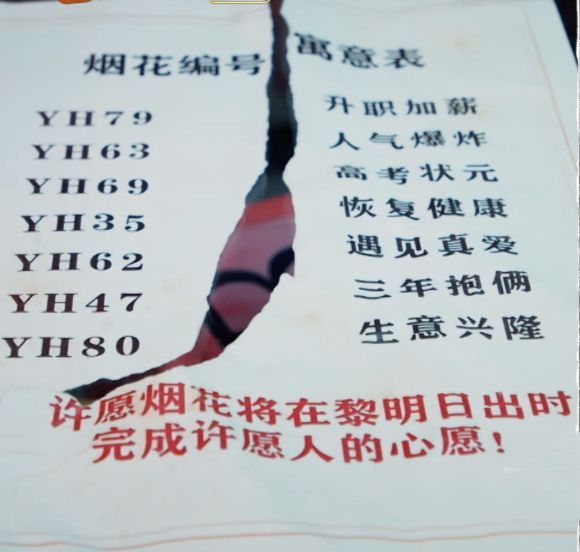 烟花编号 寓意表
YH79 升职加薪
YH63 人气爆炸
YH69 高考状元
YH35 恢复健康
YH62 遇见真爱
YH47 三年抱俩
YH80 生意兴隆
许愿烟花将在黎明日出时
完成许愿人的心愿!